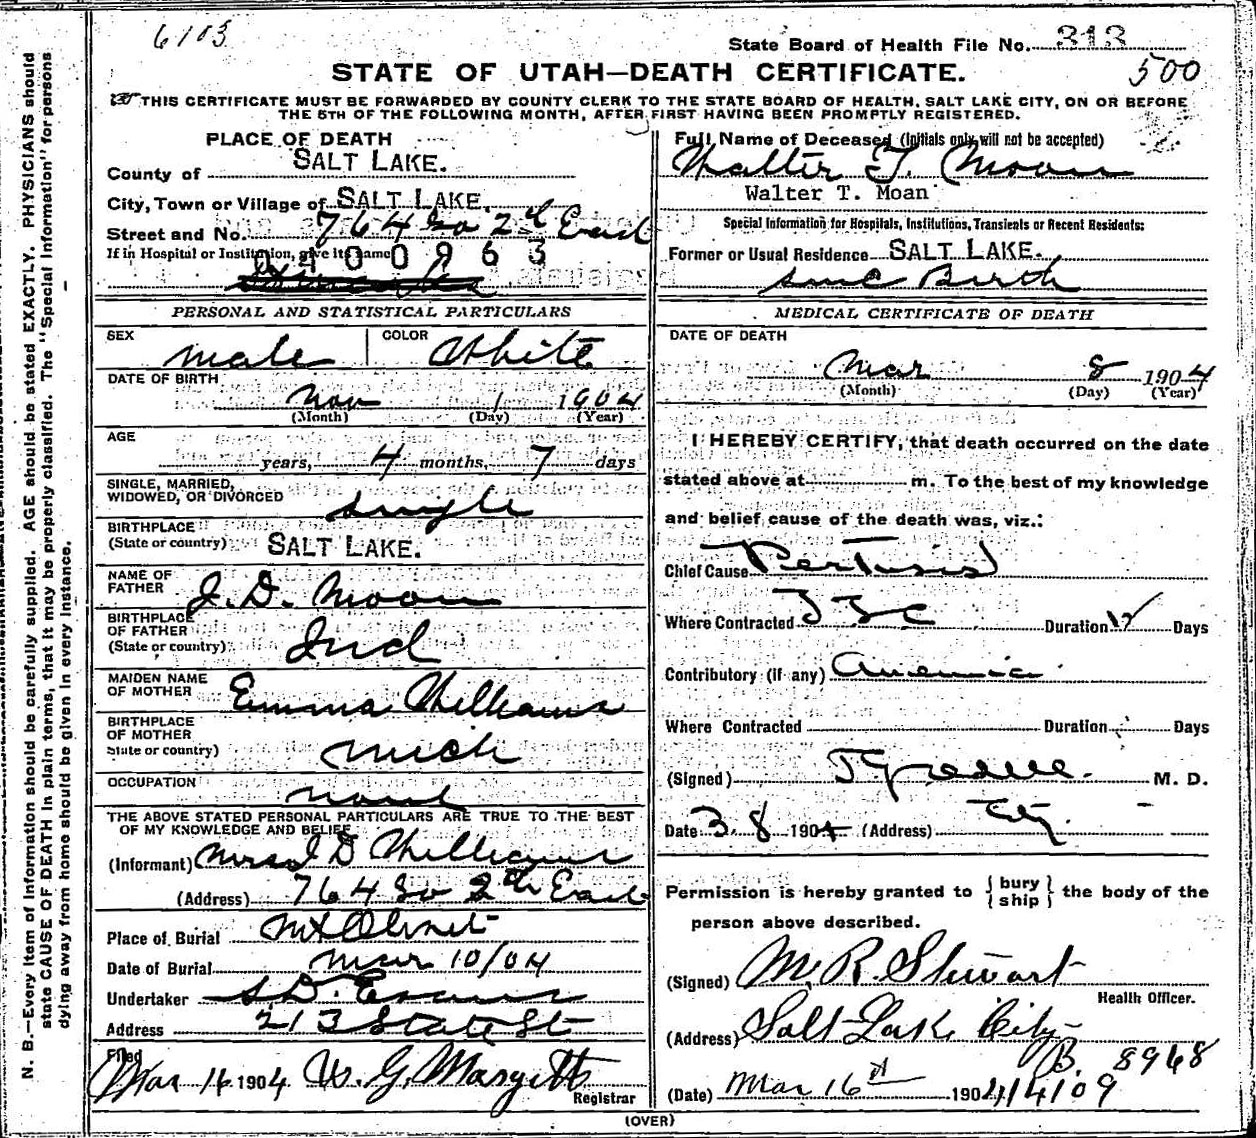 6103
State Board of Health File No. 313
STATE OF UTAH—DEATH CERTIFICATE. 500
THIS CERTIFICATE MUST BE FORWARDED BY COUNTY CLERK TO THE STATE BOARD OF HEALTH, SALT LAKE CITY, ON OR BEFORE
THE 5TH OF THE FOLLOWING MONTH, AFTER FIRST HAVING BEEN PROMPTLY REGISTERED.
PLACE OF DEATH
County of SALT LAKE.
City, Town or Village of SALT LAKE.
Street and No. 764 So 2d East
If in Hospital or Institution, give its name
0400963
PERSONAL AND STATISTICAL PARTICULARS
SEX male COLOR White
DATE OF BIRTH
Nov 1 1904
(Month) (Day) (Year)
AGE
years, 4 months, 7 days
SINGLE, MARRIED,
WIDOWED, OR DIVORCED single
BIRTHPLACE
(State or country) SALT LAKE.
NAME OF
FATHER J. D. Moan
BIRTHPLACE
OF FATHER
(State or country) Ind
MAIDEN NAME
OF MOTHER Emma Williams
BIRTHPLACE
OF MOTHER
State or country) Mich
OCCUPATION
THE ABOVE STATED PERSONAL PARTICULARS ARE TRUE TO THE BEST
OF MY KNOWLEDGE AND BELIEF
(Informant) Mrs J D Williams
(Address) 764 So 2th East
Place of Burial Mt Olivet
Date of Burial Mar 10/04
Undertaker S D. Evans
Address 213 State St
Filed
Mar 16 1904 W. G. Margetts
Registrar
Full Name of Deceased (Initials only will not be accepted)
Walter T. Moan
Walter T. Moan
Special Information for Hospitals, Institutions, Transients or Recent Residents:
Former or Usual Residence SALT LAKE.
since Birth
MEDICAL CERTIFICATE OF DEATH
DATE OF DEATH
Mar 8 1904
(Month) (Day) (Year)
I HEREBY CERTIFY, that death occurred on the date
stated above at m. To the best of my knowledge
and belief cause of the death was, viz.:
Chief Cause Pertusis
Where Contracted Duration 12 Days
Contributory (if any) Anemia
Where Contracted Duration Days
(Signed) M. D.
Date 3. 8 1904 (Address) City.
Permission is hereby granted to { bury } the body of the
{ ship }
person above described.
(Signed) M. R. Stewart
Health Officer.
(Address) Salt Lake City
B. 8968
(Date) Mar 16th 1904
4109
(OVER)
N. B.—Every item of information should be carefully supplied. AGE should be stated EXACTLY. PHYSICIANS should
state CAUSE OF DEATH in plain terms, that it may be properly classified. The "Special Information" for persons
dying away from home should be given in every instance.